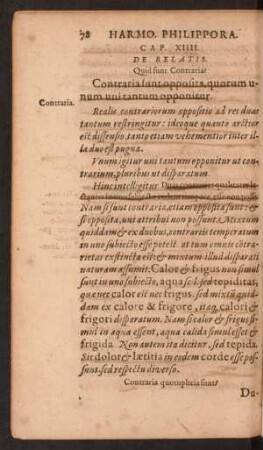 78 HARMO. PHILIPPORA.
CAP. XIIII.
DE RELATIS.
Quid sunt Contraria?
Contraria sunt opposita, quorum u-
num uni tantum opponitur.
Contraria.
Realis contrariorum oppositio ad res duas
tantum restringitur: ideoque quanto arctior
eit dissensio, tanto etiam vehementior inter il-
la duo est pugna.
Unum igitur uni tantum opponitur ut con-
trarium, pluribus ut disparatum.
Hinc intelligitur
Nam si sunt contraria, etiam opposita sunt: &
si opposita, uni attribui non possunt. Mixtum
quiddam & ex duobus, contrariis temperatum
in uno subiecto esse potest. at tum omnis contra-
rietas extincta est: & mixtum illud disparati
naturam assumit. Calor & frigus non simul
sunt in uno subiecto, aqua sc. sed tepiditas,
quæ nec calor eit nec frigus, sed mixtũ quid-
dam ex calore & frigore, itaq, calori &
frigori disparatum. Nam si calor & frigus si-
mul in aqua essent, aqua calida simul esset &
frigida. Non autem ita dicitur, sed tepida.
Sic dolor & lætitia in eodem corde esse pos-
sunt, sed respectu diverso.
Contraria quotuplicia sunt?
Du-